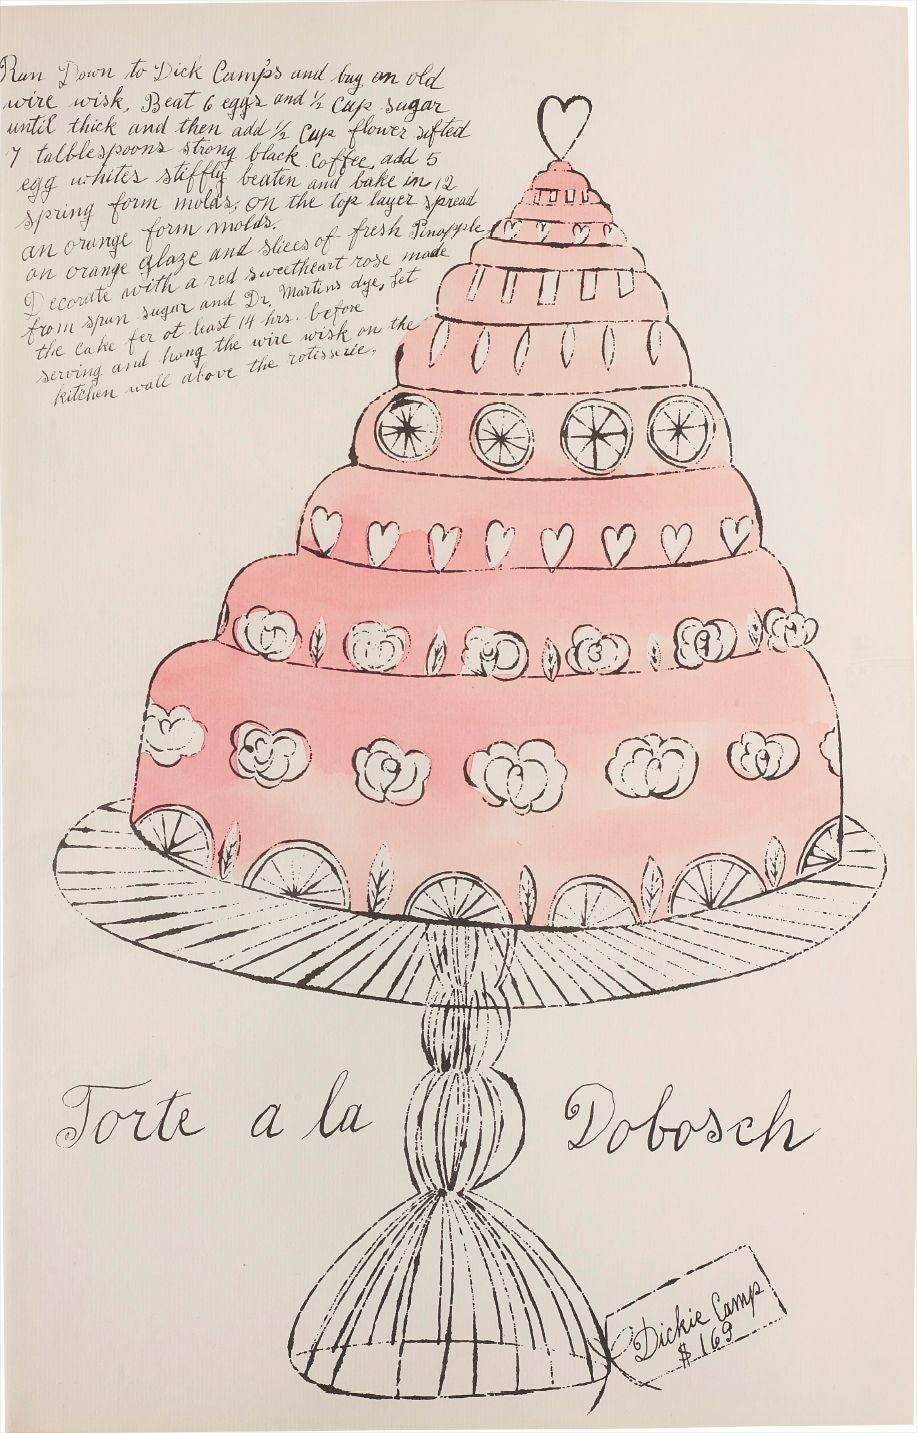 Run Down to Dick Camp's and buy an old
wire wisk. Beat 6 eggs and ½ cup sugar
until thick and then add ½ cup flower sifted
7 talblespoons strong black coffee, add 5
egg whites stiffly beaten and bake in 12
spring form molds, on the top layer spread
an orange form molds.
an orange glaze and slices of fresh Pinapple
Decorate with a red sweetheart rose made
from spun sugar and Dr. Martins dye, Let
the cake fer at least 14 hrs. before
serving and hang the wire wisk on the
kitchen wall above the rotisserie.
Torte a la Dobosch
Dickie Camp
$169